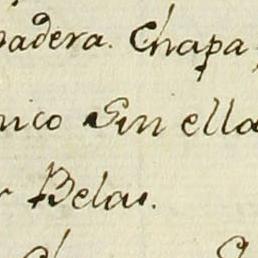 padera. Chapa
nico Sin ella
r Belas.